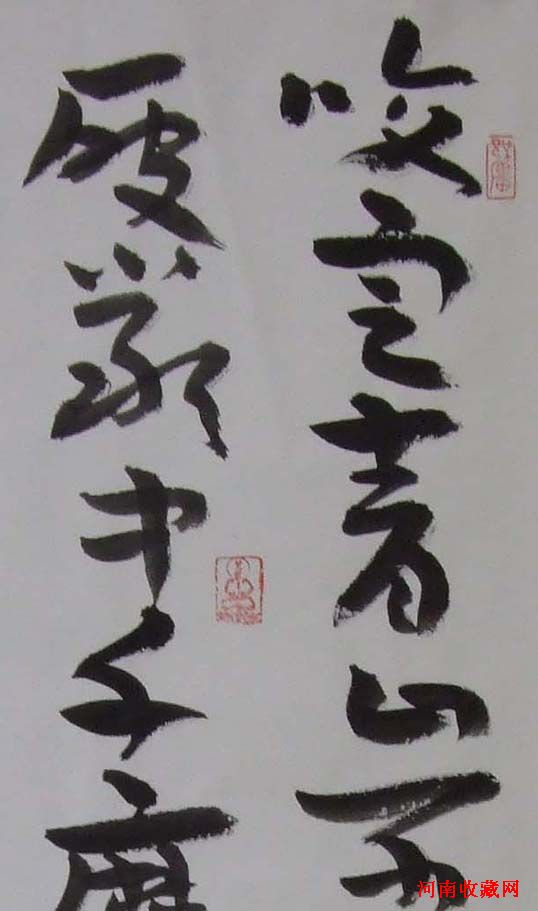 咬定青山不
破巖中千磨
河南收藏网